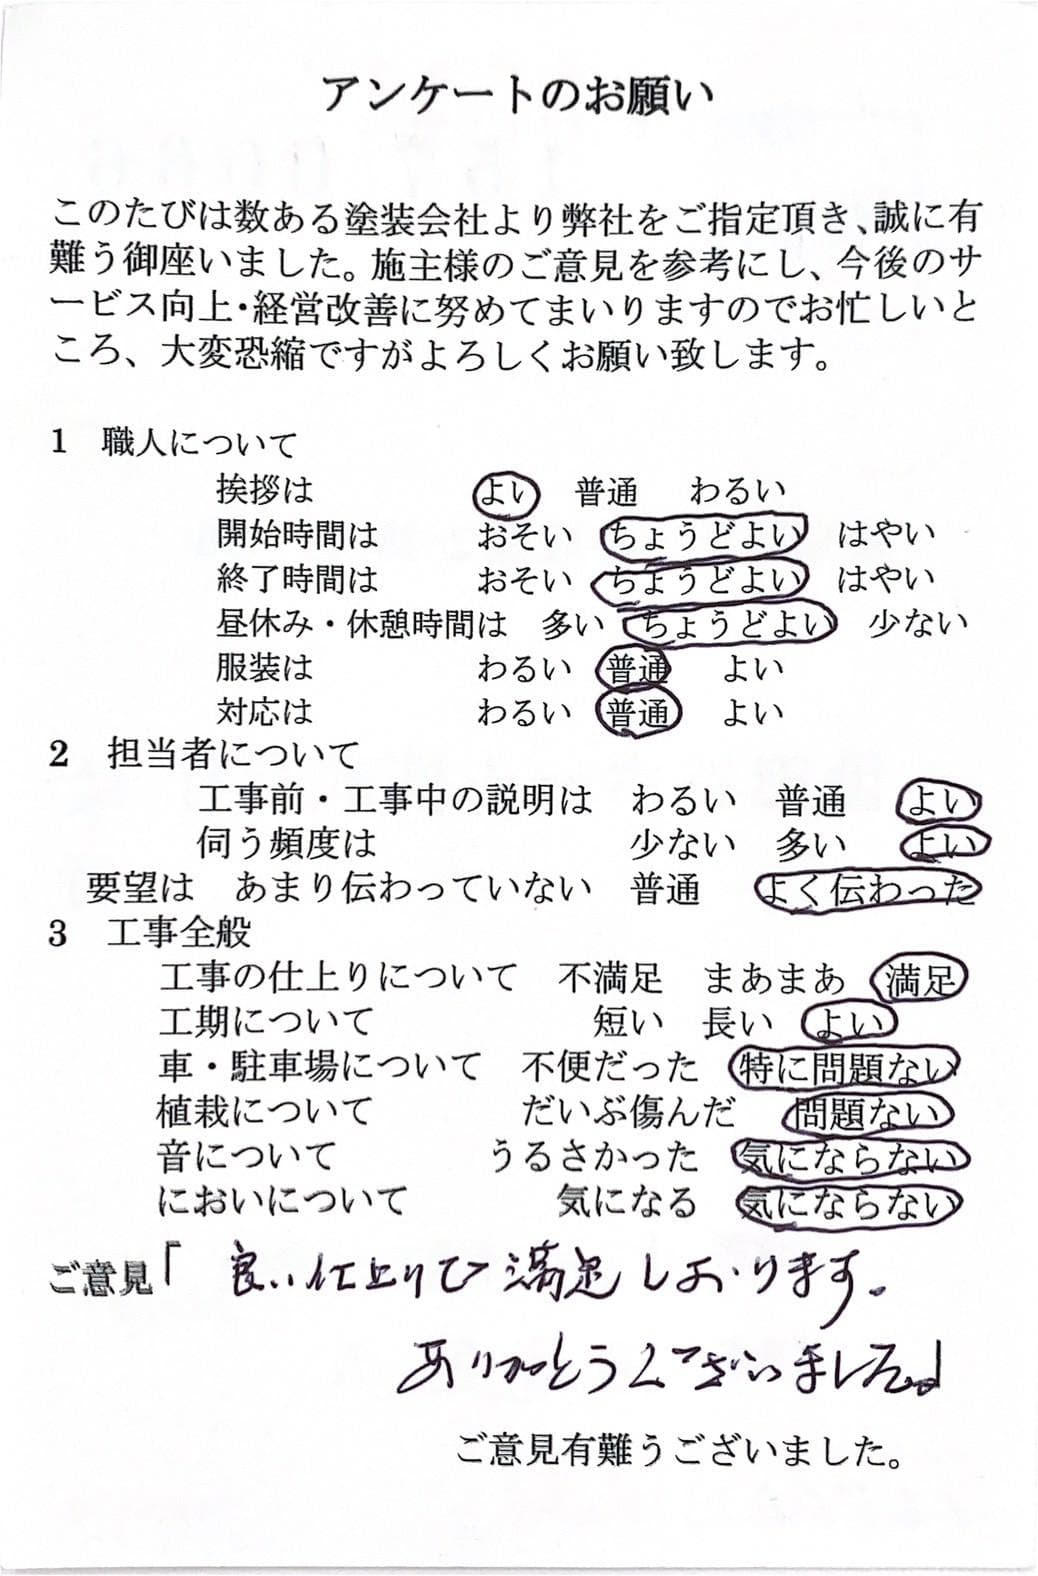 アンケートのお願い
このたびは数ある塗装会社より弊社をご指定頂き、誠に有
難う御座いました。施主様のご意見を参考にし、今後のサ
ービス向上・経営改善に努めてまいりますのでお忙しいと
ころ、大変恐縮ですがよろしくお願い致します。
1 職人について
挨拶は よい 普通 わるい
開始時間は おそい ちょうどよい はやい
終了時間は おそい ちょうどよい はやい
昼休み・休憩時間は 多い ちょうどよい 少ない
服装は わるい 普通 よい
対応は わるい 普通 よい
2 担当者について
工事前・工事中の説明は わるい 普通 よい
伺う頻度は 少ない 多い よい
要望は あまり伝わっていない 普通 よく伝わった
3 工事全般
工事の仕上りについて 不満足 まあまあ 満足
工期について 短い 長い よい
車・駐車場について 不便だった 特に問題ない
植栽について だいぶ傷んだ 問題ない
音について うるさかった 気にならない
においについて 気になる 気にならない
ご意見「 良い仕上りで満足しております。
ありがとうございました。」
ご意見有難うございました。